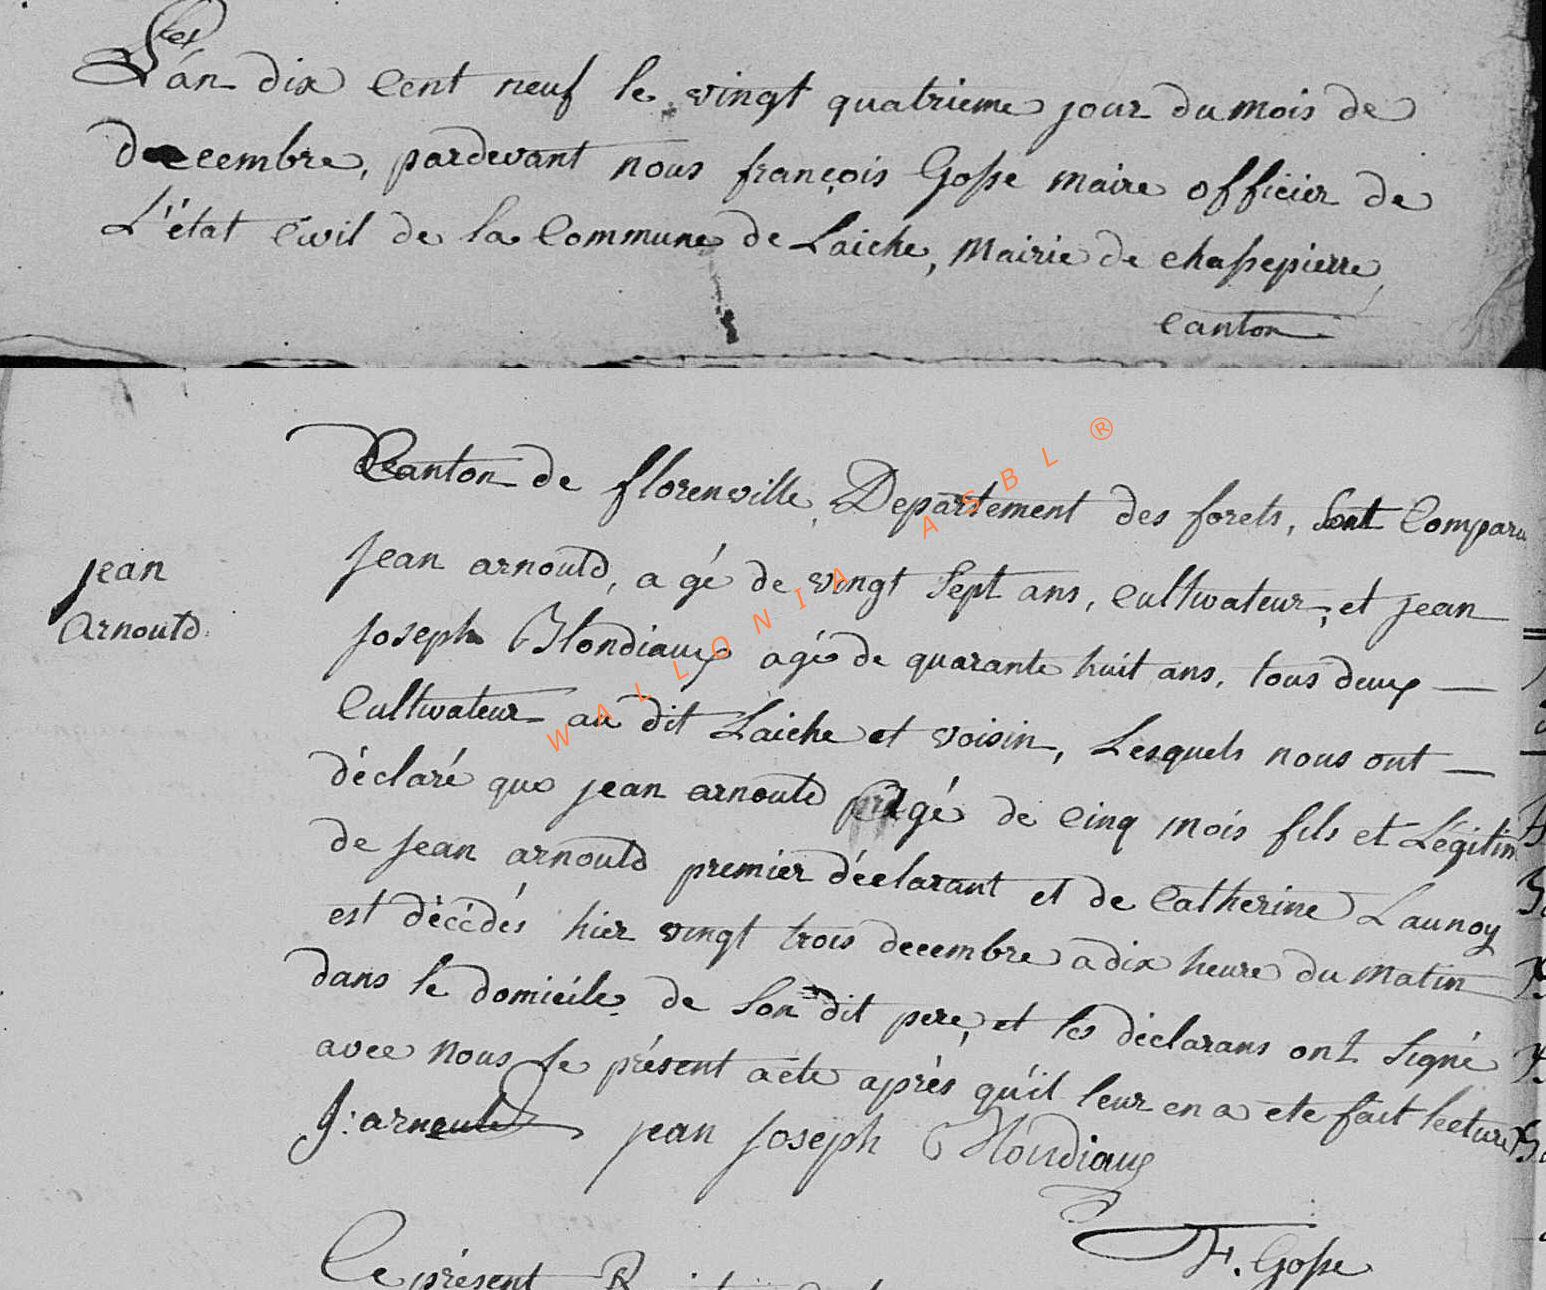 L'an dix Cent neuf le vingt quatrieme jour du mois de
decembre, pardevant nous françois Gosse maire officier de
L'état Civil de la Commune de Laiche, Mairie de chassepierre,
Canton
Canton de florenville, Departement des forets, Sont Comparu
jean arnould, agé de vingt Sept ans, cultivateur, et jean
jean
Arnould.
joseph Blondiaux agé de quarante huit ans, tous deux —
Cultivateur au dit Laiche et voisin, Lesquels nous ont —
déclaré que jean arnould agé de Cinq mois fils et Légitim
de jean arnould premier déclarant et de Catherine Launoy
est décédés hier vingt trois decembre a dix heure du matin
dans le domicile de Son dit pere, et les déclarans ont Signé
avec nous le présent acte après qu'il leur en a ete fait lecture
J: arnould jean joseph Blondiaux
F. Gosse
Ce présent
WALLONIA ASBL ®